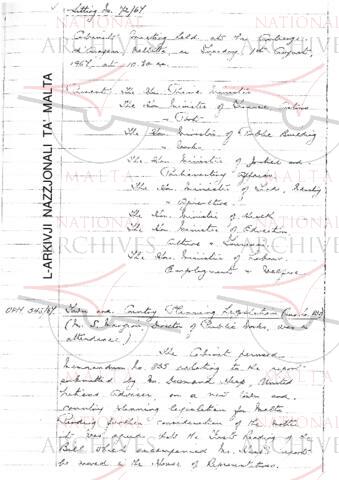 Sitting No. 72/67
Cabinet Meeting held at the Auberge
d'Aragon, Valletta, on Tuesday, 1st August,
1967, at 10.30 a.m.
Present: The Hon. Prime Minister
The Hon. Minister of Finance, Customs
& Port
The Hon. Minister of Public Building
& Works
The Hon. Minister of Justice and
Parliamentary Affairs
The Hon. Minister of Trade, Industry
& Agriculture
The Hon. Minister of Health
The Hon. Minister of Education,
Culture & Tourism
The Hon. Minister of Labour,
Employment & Welfare
L-ARKIVJI NAZZJONALI TA' MALTA
OPM 343/67 Town and Country Planning Legislation
(Mr. S. Mangion, Director of Public Works, was in
attendance)
The Cabinet perused
Memorandum No. 855 relating to the report
submitted by Mr. Desmond Heap, United
Nations Adviser, on a new town and
country planning legislation for Malta.
Pending further consideration of the matter
it was agreed that the First Reading of the
Bill which accompanied Mr. Heap's report
be moved in the House of Representatives.
NATIONAL
ARCHIVES